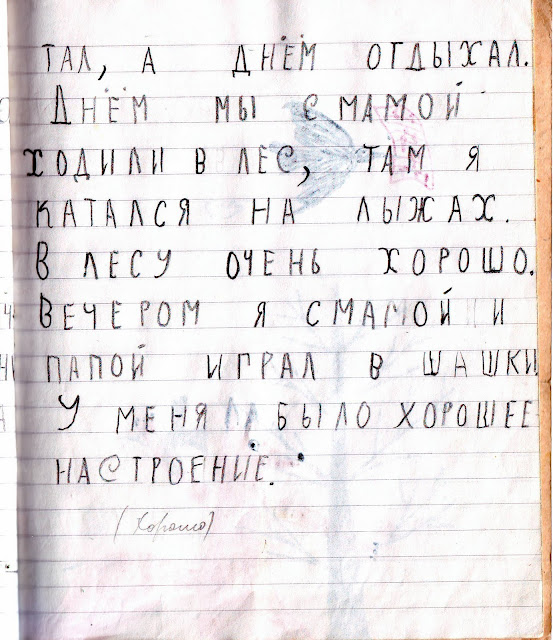 ТАЛ, А ДНЁМ ОТДЫХАЛ.
ДНЁМ МЫ С МАМОЙ
ХОДИЛИ В ЛЕС, ТАМ Я
КАТАЛСЯ НА ЛЫЖАХ.
В ЛЕСУ ОЧЕНЬ ХОРОШО.
ВЕЧЕРОМ Я С МАМОЙ И
ПАПОЙ ИГРАЛ В ШАШКИ
У МЕНЯ БЫЛО ХОРОШЕЕ
НАСТРОЕНИЕ.
(Хорошо)